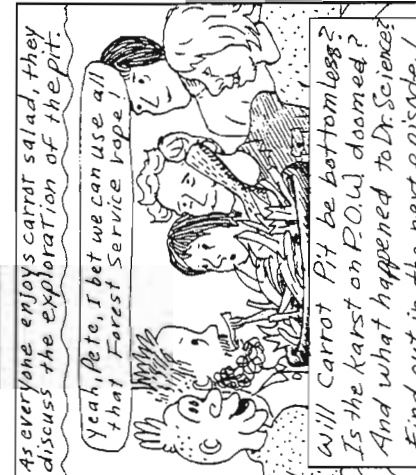 As everyone enjoys carrot salad, they
discuss the exploration of the pit.
Yeah, Pete, I bet we can use all
that Forest Service rope!
Will Carrot Pit be bottomless?
Is the karst on P.O.W. doomed?
And what happened to Dr. Science?
Find out in the next episode!